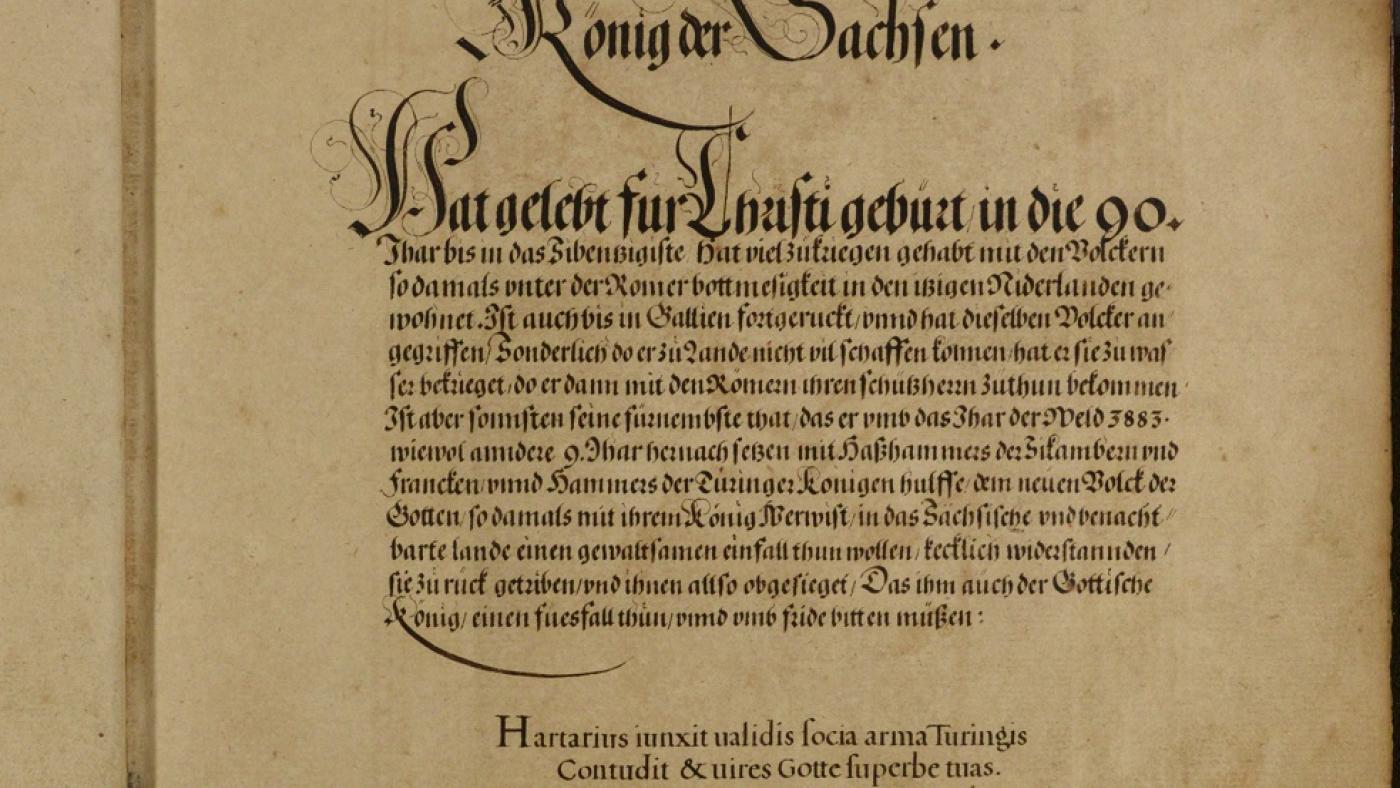 König der Sachsen.
Hat gelebt für Christi gebürt, in die 90.
Jhar bis in das Sibentzigiste. Hat viel zu kriegen gehabt mit den Volckern
so damals vnter der Römer bottmesigkeit in den itzigen Niderlanden ge-
wohnet. Ist auch bis in Gallien fortgeruckt, vnnd hat dieselben Volcker an
gegriffen, Sonderlich do er zu Lande nicht vil schaffen können, hat er sie zu was
ser bekrieget, do er dann mit den Römern ihren schützherrn zuthun bekommen
Ist aber sonnsten seine fürnembste that, das er vmb das Jhar der Weld 3883.
wiewol anndere 9. Jhar hernach setzen mit Haßhammers der Sikambern vnd
Francken, vnnd Hammers der Türinger Königen hülffe, dem neuen Volck der
Gotten, so damals mit ihrem König Werwist, in das Sächsische vnd benacht-
barte lande einen gewaltsamen einfall thun wollen, kecklich widerstannden,
sie zu rück getriben, vnd ihnen allso obgesieget, Das ihm auch der Gottische
König, einen fuesfall thün, vnnd vmb fride bitten müßen:
Hartarius iunxit ualidis socia arma Turingis
Contudit & uires Gotte superbe tuas.